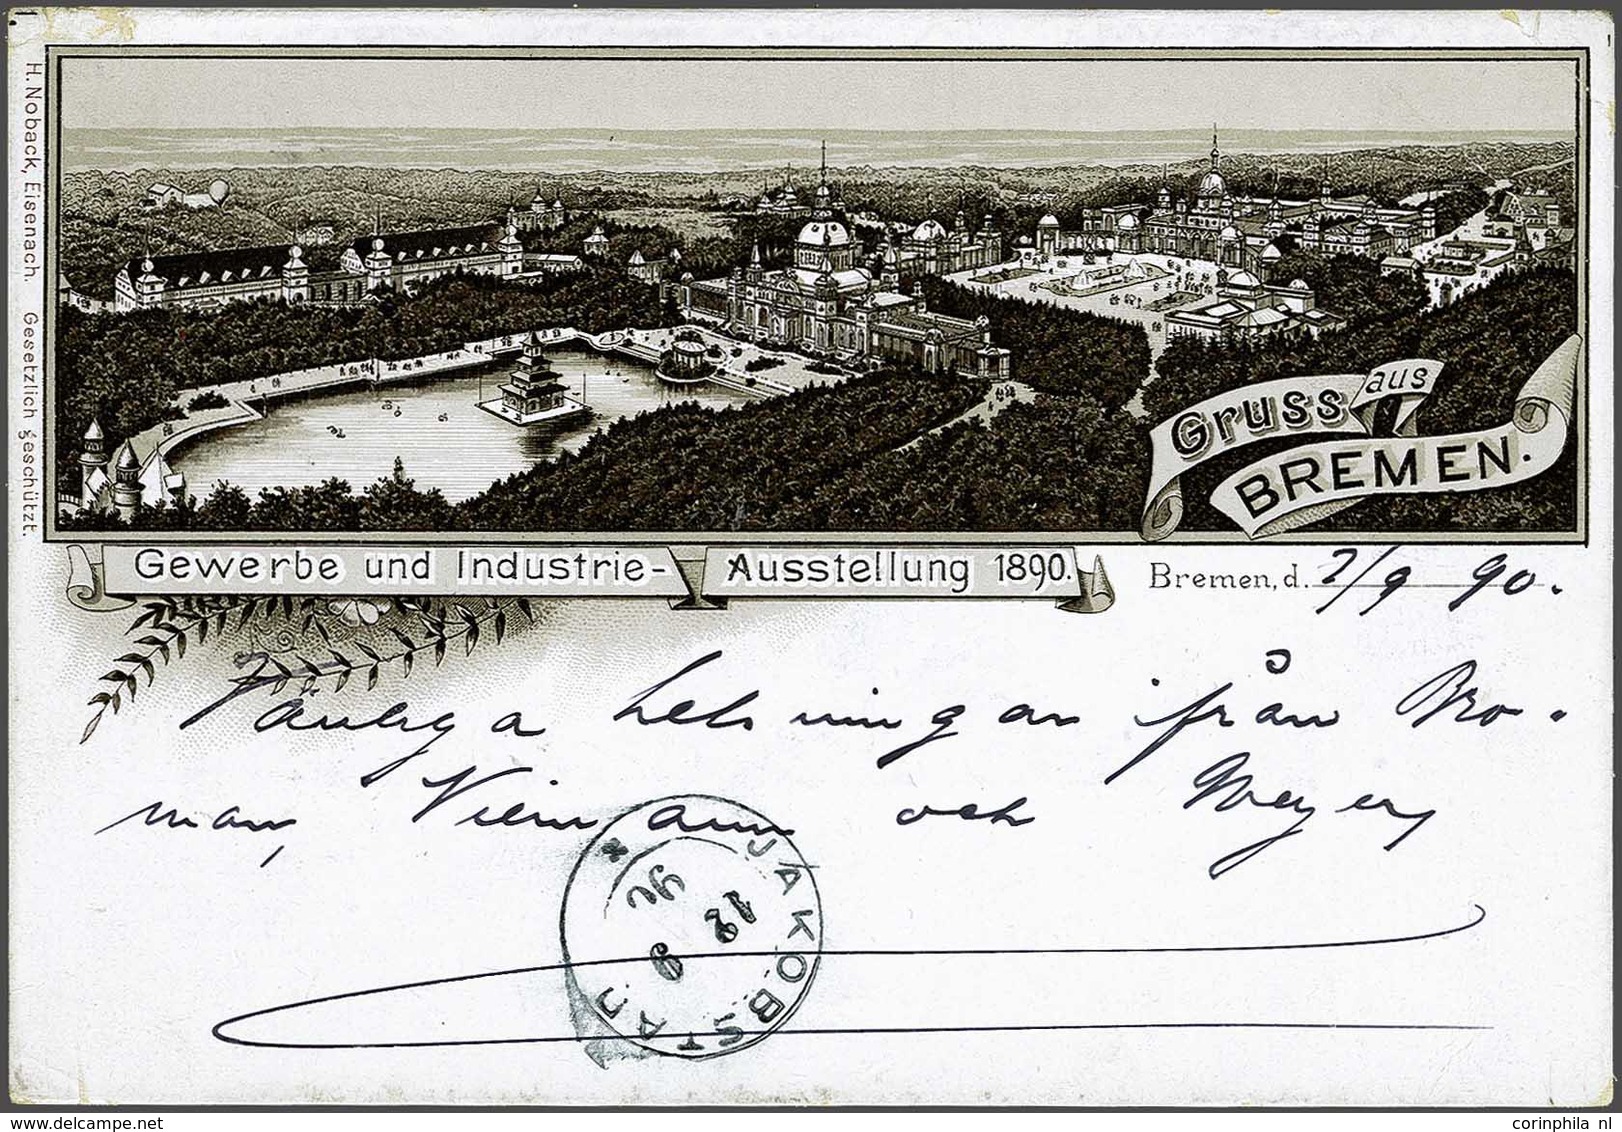 H. Noback, Eisenach. Gesetzlich geschützt.
Gruss aus
BREMEN.
Gewerbe und Industrie-Ausstellung 1890.
Bremen, d. 7/9 90.
helsningar från Bro-
man, och Meyer
JAKOBSTAD
12 9
delcampe.net
corinphila nl